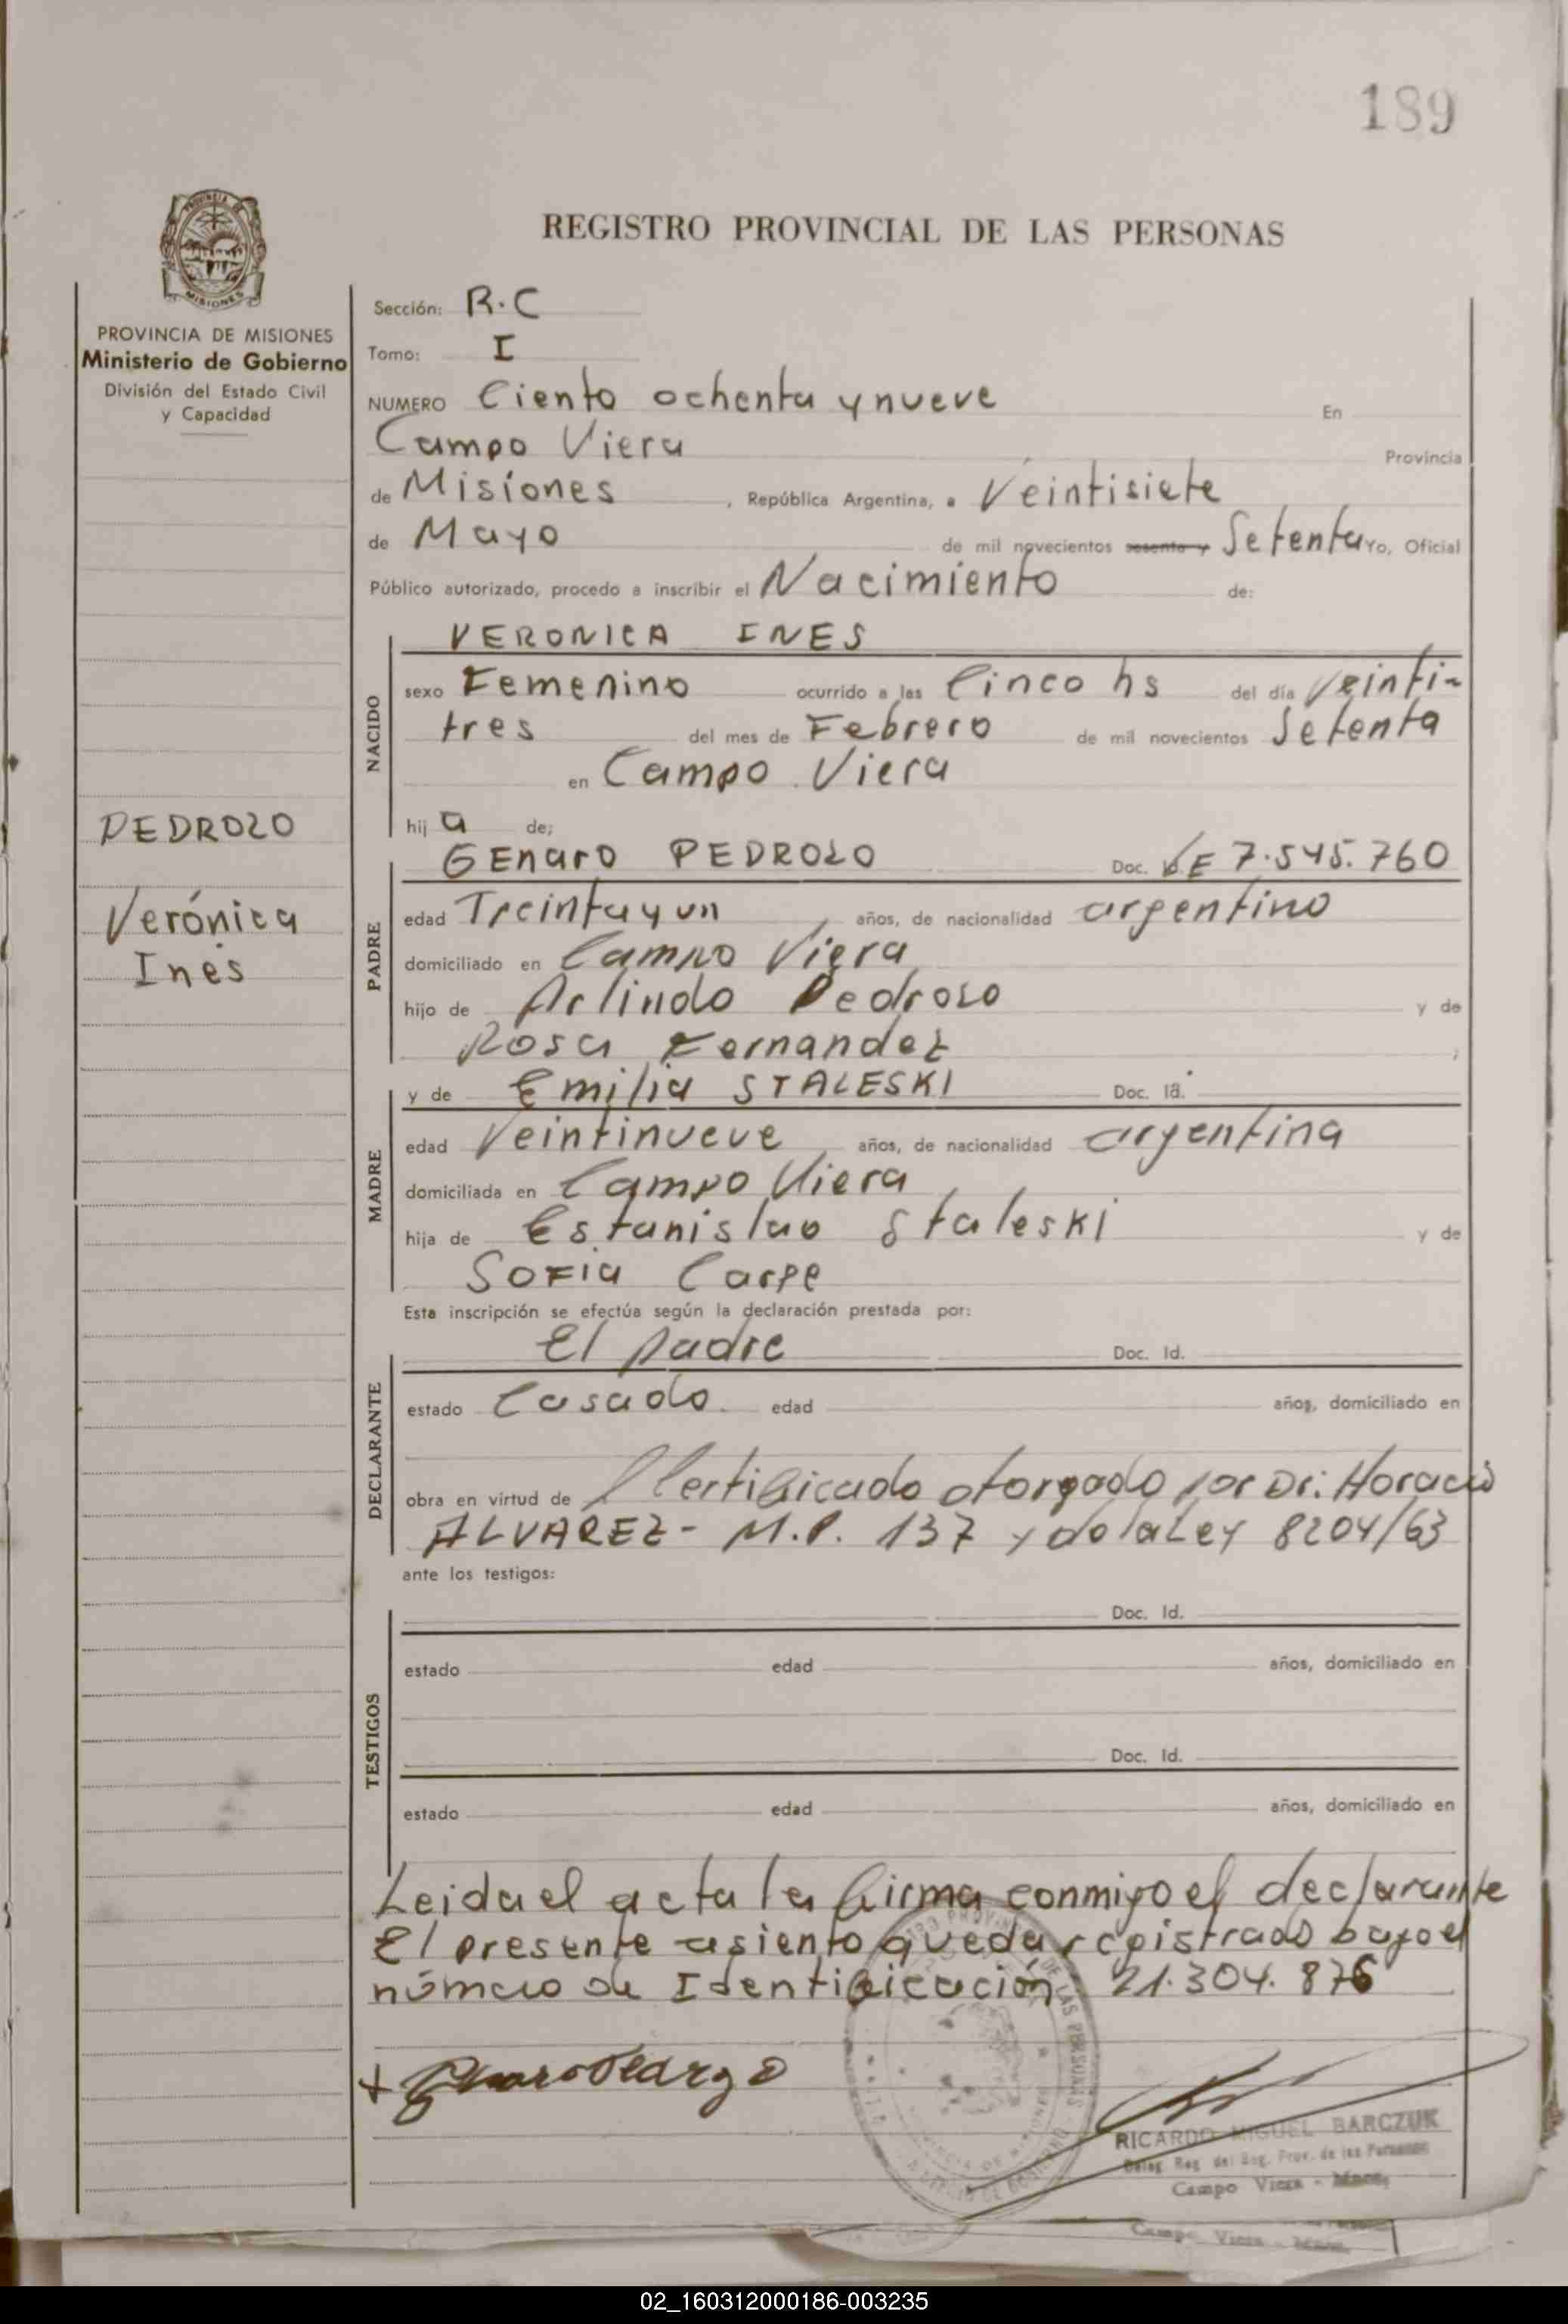 189
REGISTRO PROVINCIAL DE LAS PERSONAS
MISIONES
PROVINCIA DE MISIONES
Ministerio de Gobierno
División del Estado Civil
y Capacidad
PEDROZO
Verónica
Inés
Sección: R.C
Tomo: I
NUMERO Ciento ochenta y nueve En
Campo Viera Provincia
de Misiones, República Argentina, a Veintisiete
de Mayo de mil novecientos sesenta y Setenta Yo, Oficial
Público autorizado, procedo a inscribir el Nacimiento de:
NACIDO
VERONICA INES
sexo Femenino ocurrido a las Cinco hs del día Veinti-
tres del mes de Febrero de mil novecientos Setenta
en Campo Viera
hij a de;
PADRE
GENARO PEDROZO Doc. LE 7.545.760
edad Treinta y un años, de nacionalidad argentino
domiciliado en Campo Viera
hijo de Arlindo Pedrozo y de
Rosa Fernandez ;
MADRE
y de Emilia STALESKI Doc. Id.
edad Veintinueve años, de nacionalidad argentina
domiciliada en Campo Viera
hija de Estanislao Staleski y de
Sofia Carpe
Esta inscripción se efectúa según la declaración prestada por:
DECLARANTE
El padre Doc. Id.
estado Casado edad años, domiciliado en
obra en virtud de Certificado otorgado por Dr. Horacio
ALVAREZ- M.P. 137 y de la Ley 8204/63
ante los testigos:
TESTIGOS
Doc. Id.
estado edad años, domiciliado en
Doc. Id.
estado edad años, domiciliado en
Leida el acta la firma conmigo el declarante
El presente asiento queda registrado bajo el
número de Identificación 21.304.876
RICARDO MIGUEL BARCZUK
Deleg. Reg. del Reg. Prov. de las Personas
Campo Viera - Mnes.
Campo Viera - Mnes.
02_160312000186-003235